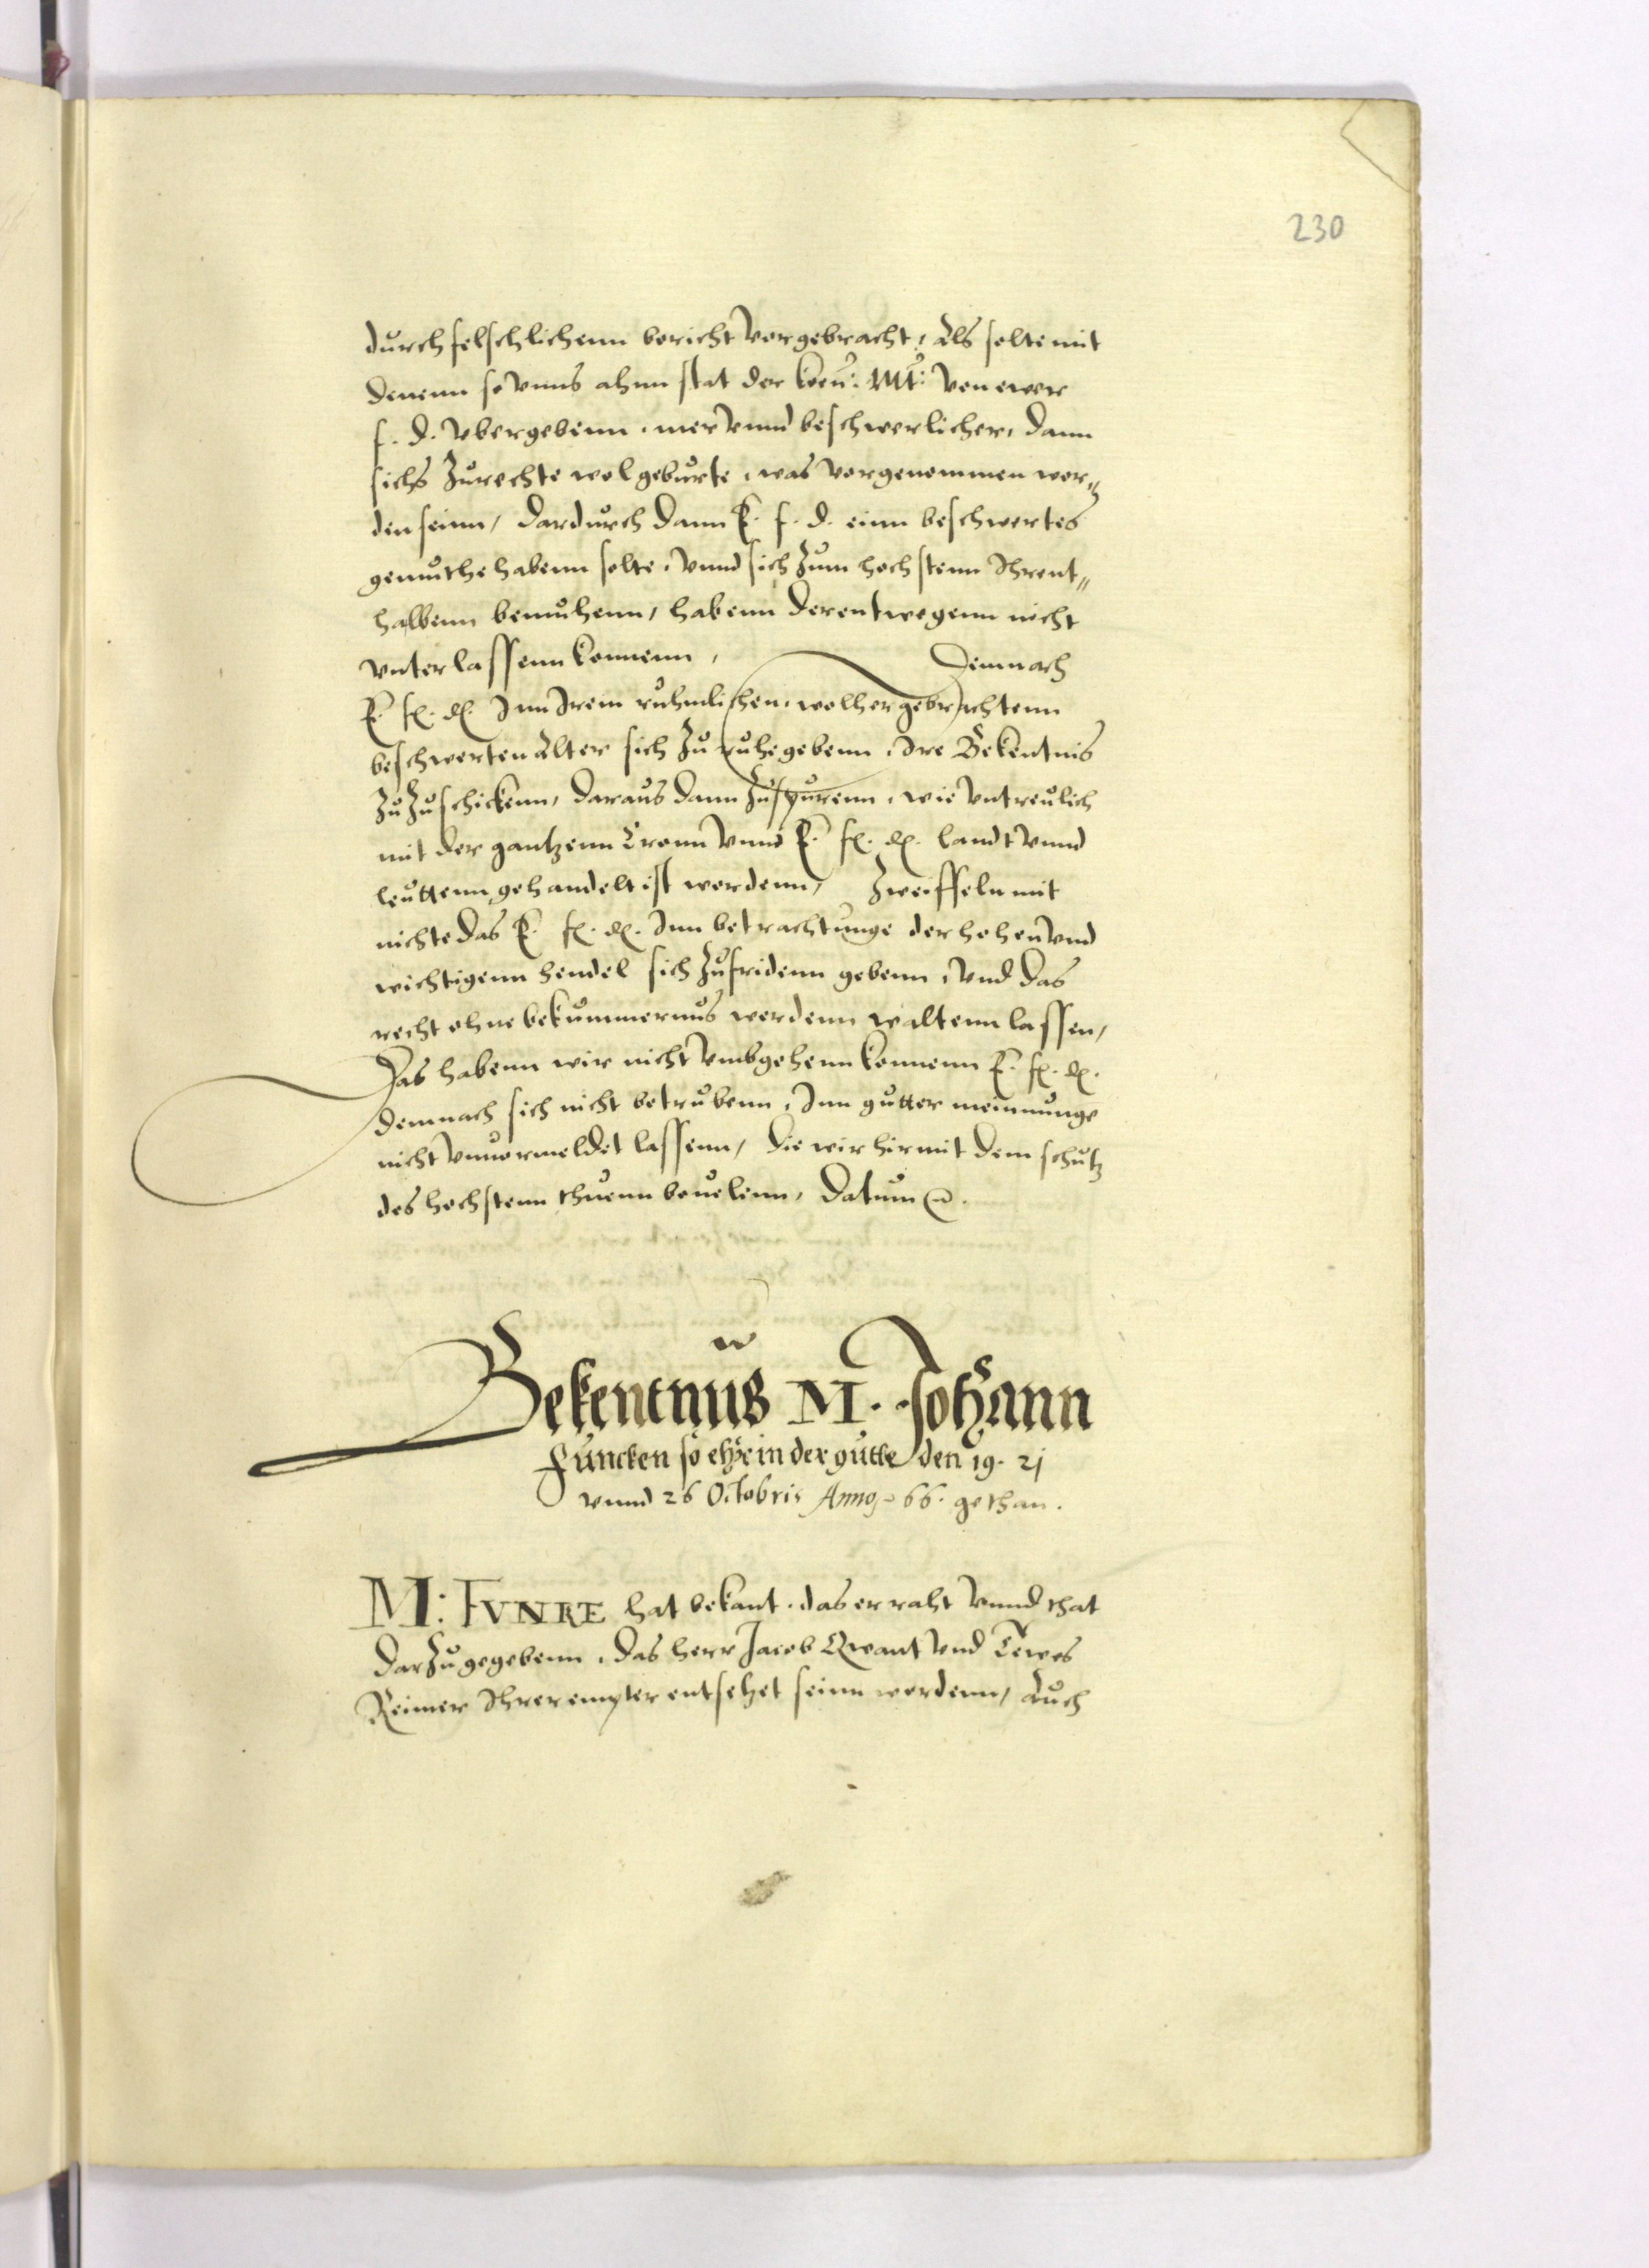 230
durch felschlichenn bericht vorgebracht, Als solte mit
denenn so vnns ahnn stat der kön: Mt: von ewer
f. d. vbergebenn, mer vnnd beschwerlicher, dann
sichs zurechte wol geburte, was vorgenommen wor„
den seinn, dardurch dann E. f. d. einn beschwertes
gemuthe habenn solte, vnnd sich zum hochstenn Ihrent„
halbenn bemuhenn, habenn derentwegenn nicht
vnterlassenn konnenn, Demnach
E. f. d. Inn Irem ruhmlichen, wolhergebrachtenn
beschwerten Alter sich zu ruhe gebenn, Ire Bekentnis
zuzuschickenn, daraus dann zuspurenn, wie vntreulich
mit der gantzenn Cronn vnnd E. f. d. landt vnnd
leuttenn gehandelt ist wordenn, Zweiffeln mit
nichte das E. f. d. Inn betrachtunge der hohen vnd
wichtigenn hendel sich zufridenn gebenn, vnd das
recht ohne bekummernus werdenn waltenn lassen,
Das habenn wir nicht vmbgehenn konnenn E. f. d.
demnach sich nicht betrubenn, Inn gutter meinnunge
nicht vnuormeldet lassenn, die wir hirmit dem schutz
des hochstenn thuenn beuelenn, Datum
Bekentnus M. Johann
Funcken so ehr in der gutte den 19. 21
vnnd 26 Octobris Anno 66. gethan.
M: FVNKE hat bekant, das er raht vnnd that
darzu gegebenn, das herr Jacob Qwant vnd Tewes
Reimer Ihrer empter entsetzet seinn wordenn, Auch